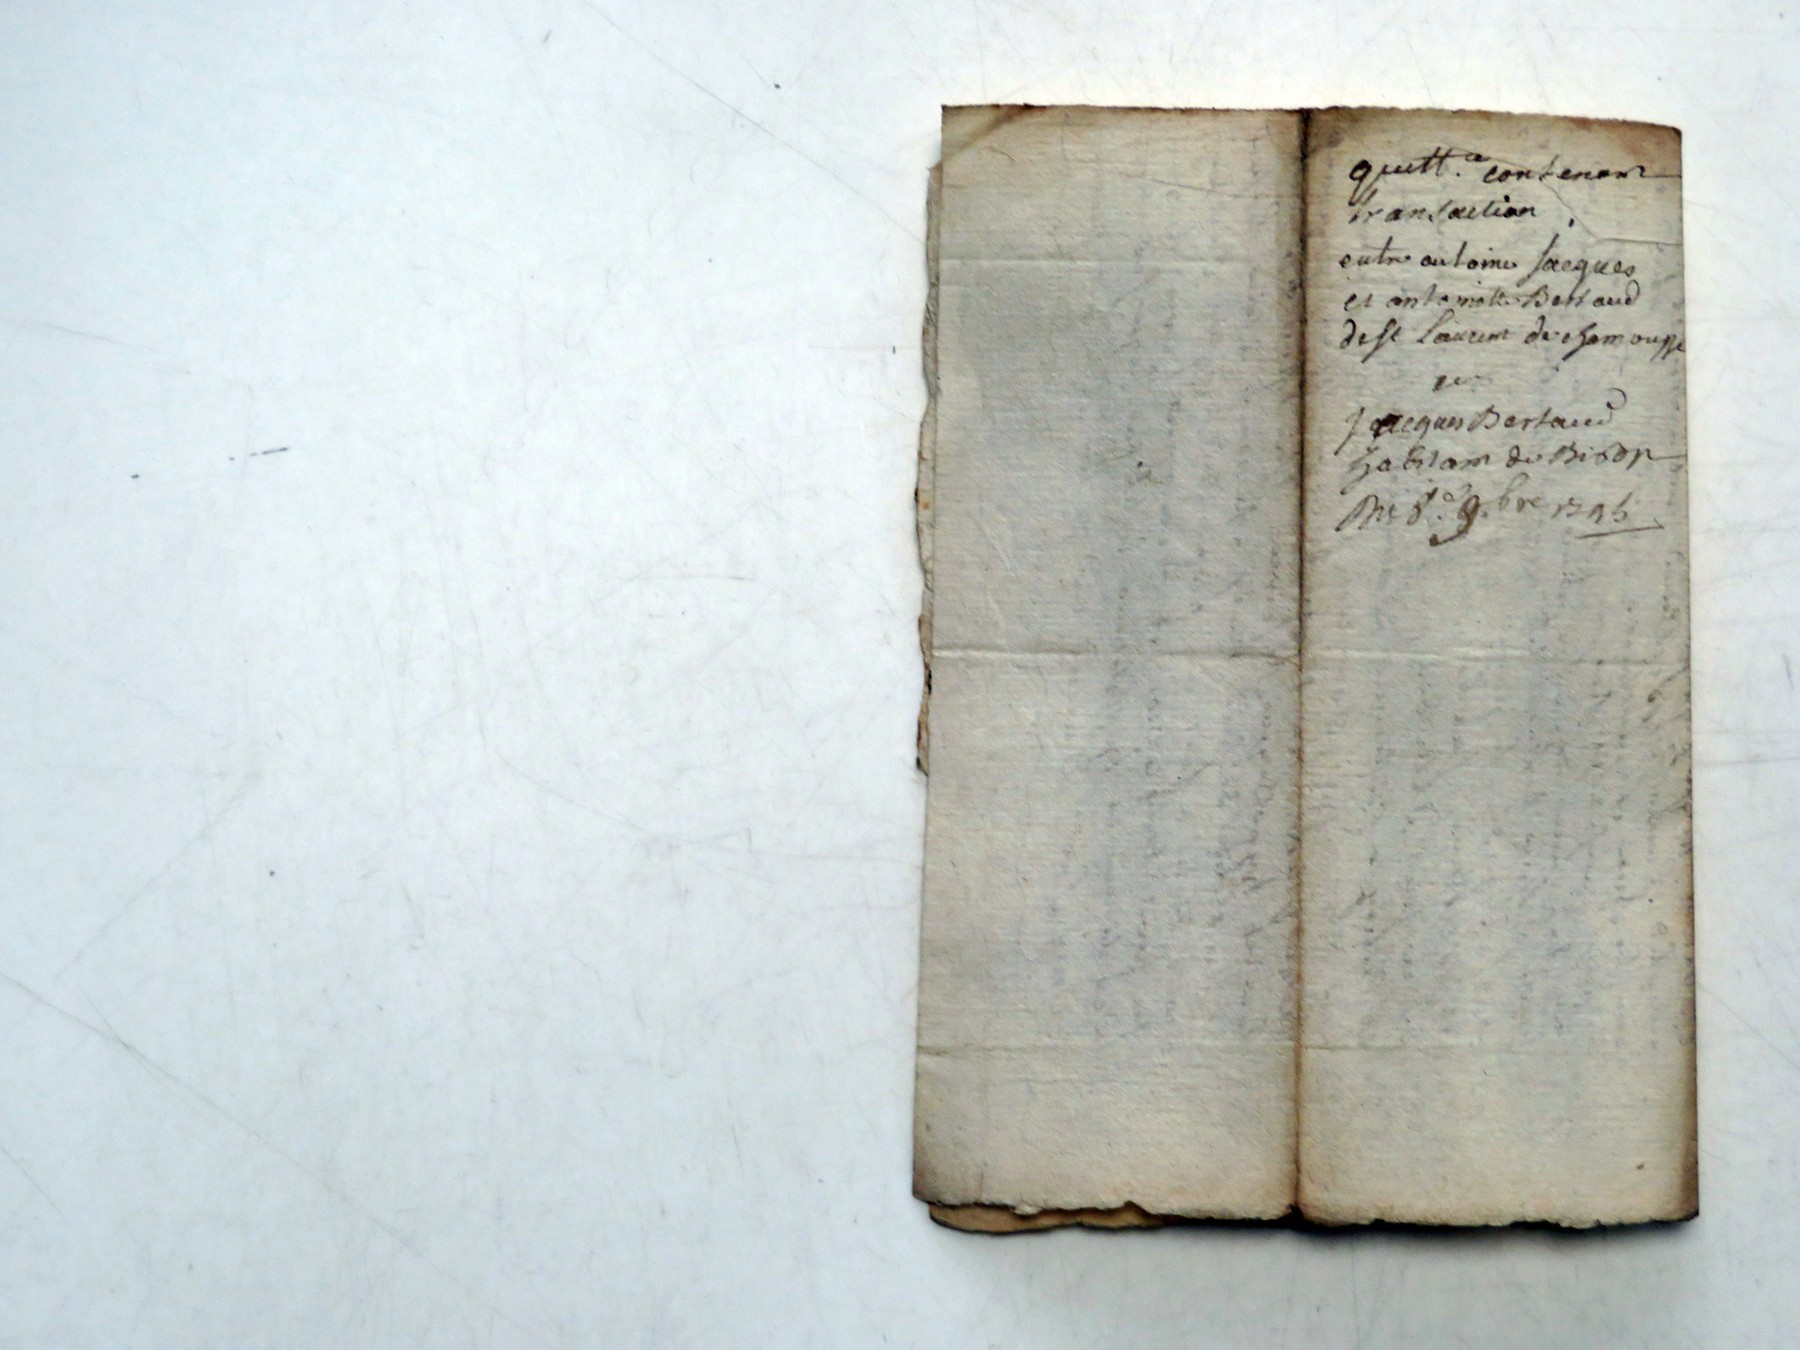 quitt.ce contenant
transaction
entre antoine Jacques
et antoinette Bertaud
de st Laurent de chamousse
et
Jacques Bertaud
habitant de
du 8.e 9.bre 1745